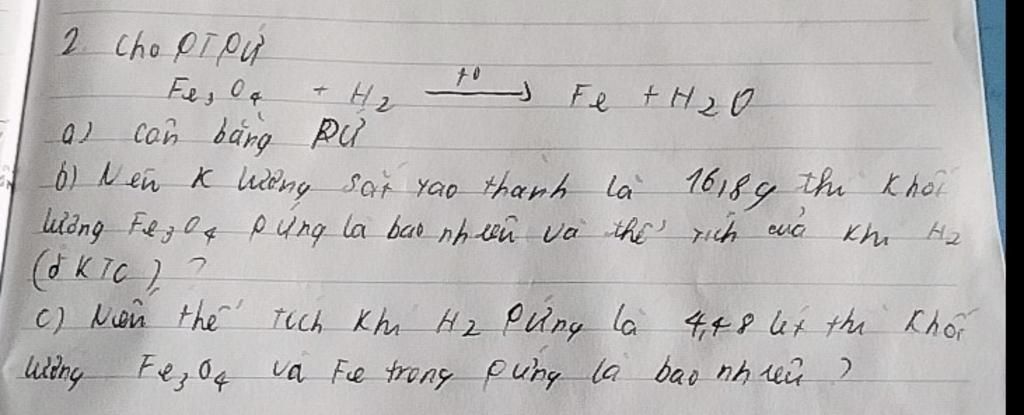 2. Cho PTPỨ
Fe3O4 + H2 →(t0) Fe + H2O
a) cân bằng PỨ
b) Nếu K lượng sắt tạo thành là 16,8g thì khối
lượng Fe3O4 p ứng là bao nhiêu và thể tích của khí H2
(ở KTC) ?
c) Nếu thể tích khí H2 p ứng là 4,48 lít thì khối
lượng Fe3O4 và Fe trong p ứng là bao nhiêu ?